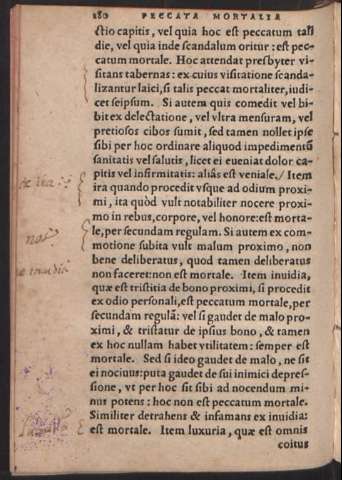 180 PECCATA MORTALIA
ctio capitis, vel quia hoc est peccatum tali
die, vel quia inde scandalum oritur : est pec-
catum mortale. Hoc attendat presbyter vi-
sitans tabernas : ex cuius visitatione scanda-
lizantur laici, si talis peccat mortaliter, iudi-
cet seipsum. Si autem quis comedit vel bi-
bit ex delectatione, vel vltra mensuram, vel
pretiosos cibos sumit, sed tamen nollet ipse
sibi per hoc ordinare aliquod impedimentũ
sanitatis vel salutis, licet ei eueniat dolor ca-
pitis vel infirmitatis: aliâs est veniale./ Item
ira quando procedit vsque ad odium proxi-
mi, ita quòd vult notabiliter nocere proxi-
mo in rebus, corpore, vel honore: est morta-
le, per secundam regulam. Si autem ex com-
motione subita vult malum proximo, non
bene deliberatus, quod tamen deliberatus
non faceret: non est mortale. Item inuidia,
quæ est tristitia de bono proximi, si procedit
ex odio personali, est peccatum mortale, per
secundam regulã: vel si gaudet de malo pro-
ximi, & tristatur de ipsius bono, & tamen
ex hoc nullam habet vtilitatem: semper est
mortale. Sed si ideo gaudet de malo, ne sit
ei nociuus: puta gaudet de sui inimici depres-
sione, vt per hoc sit sibi ad nocendum mi-
nus potens : hoc non est peccatum mortale.
Similiter detrahens & infamans ex inuidia:
est mortale. Item luxuria, quæ est omnis
coitus
de ira